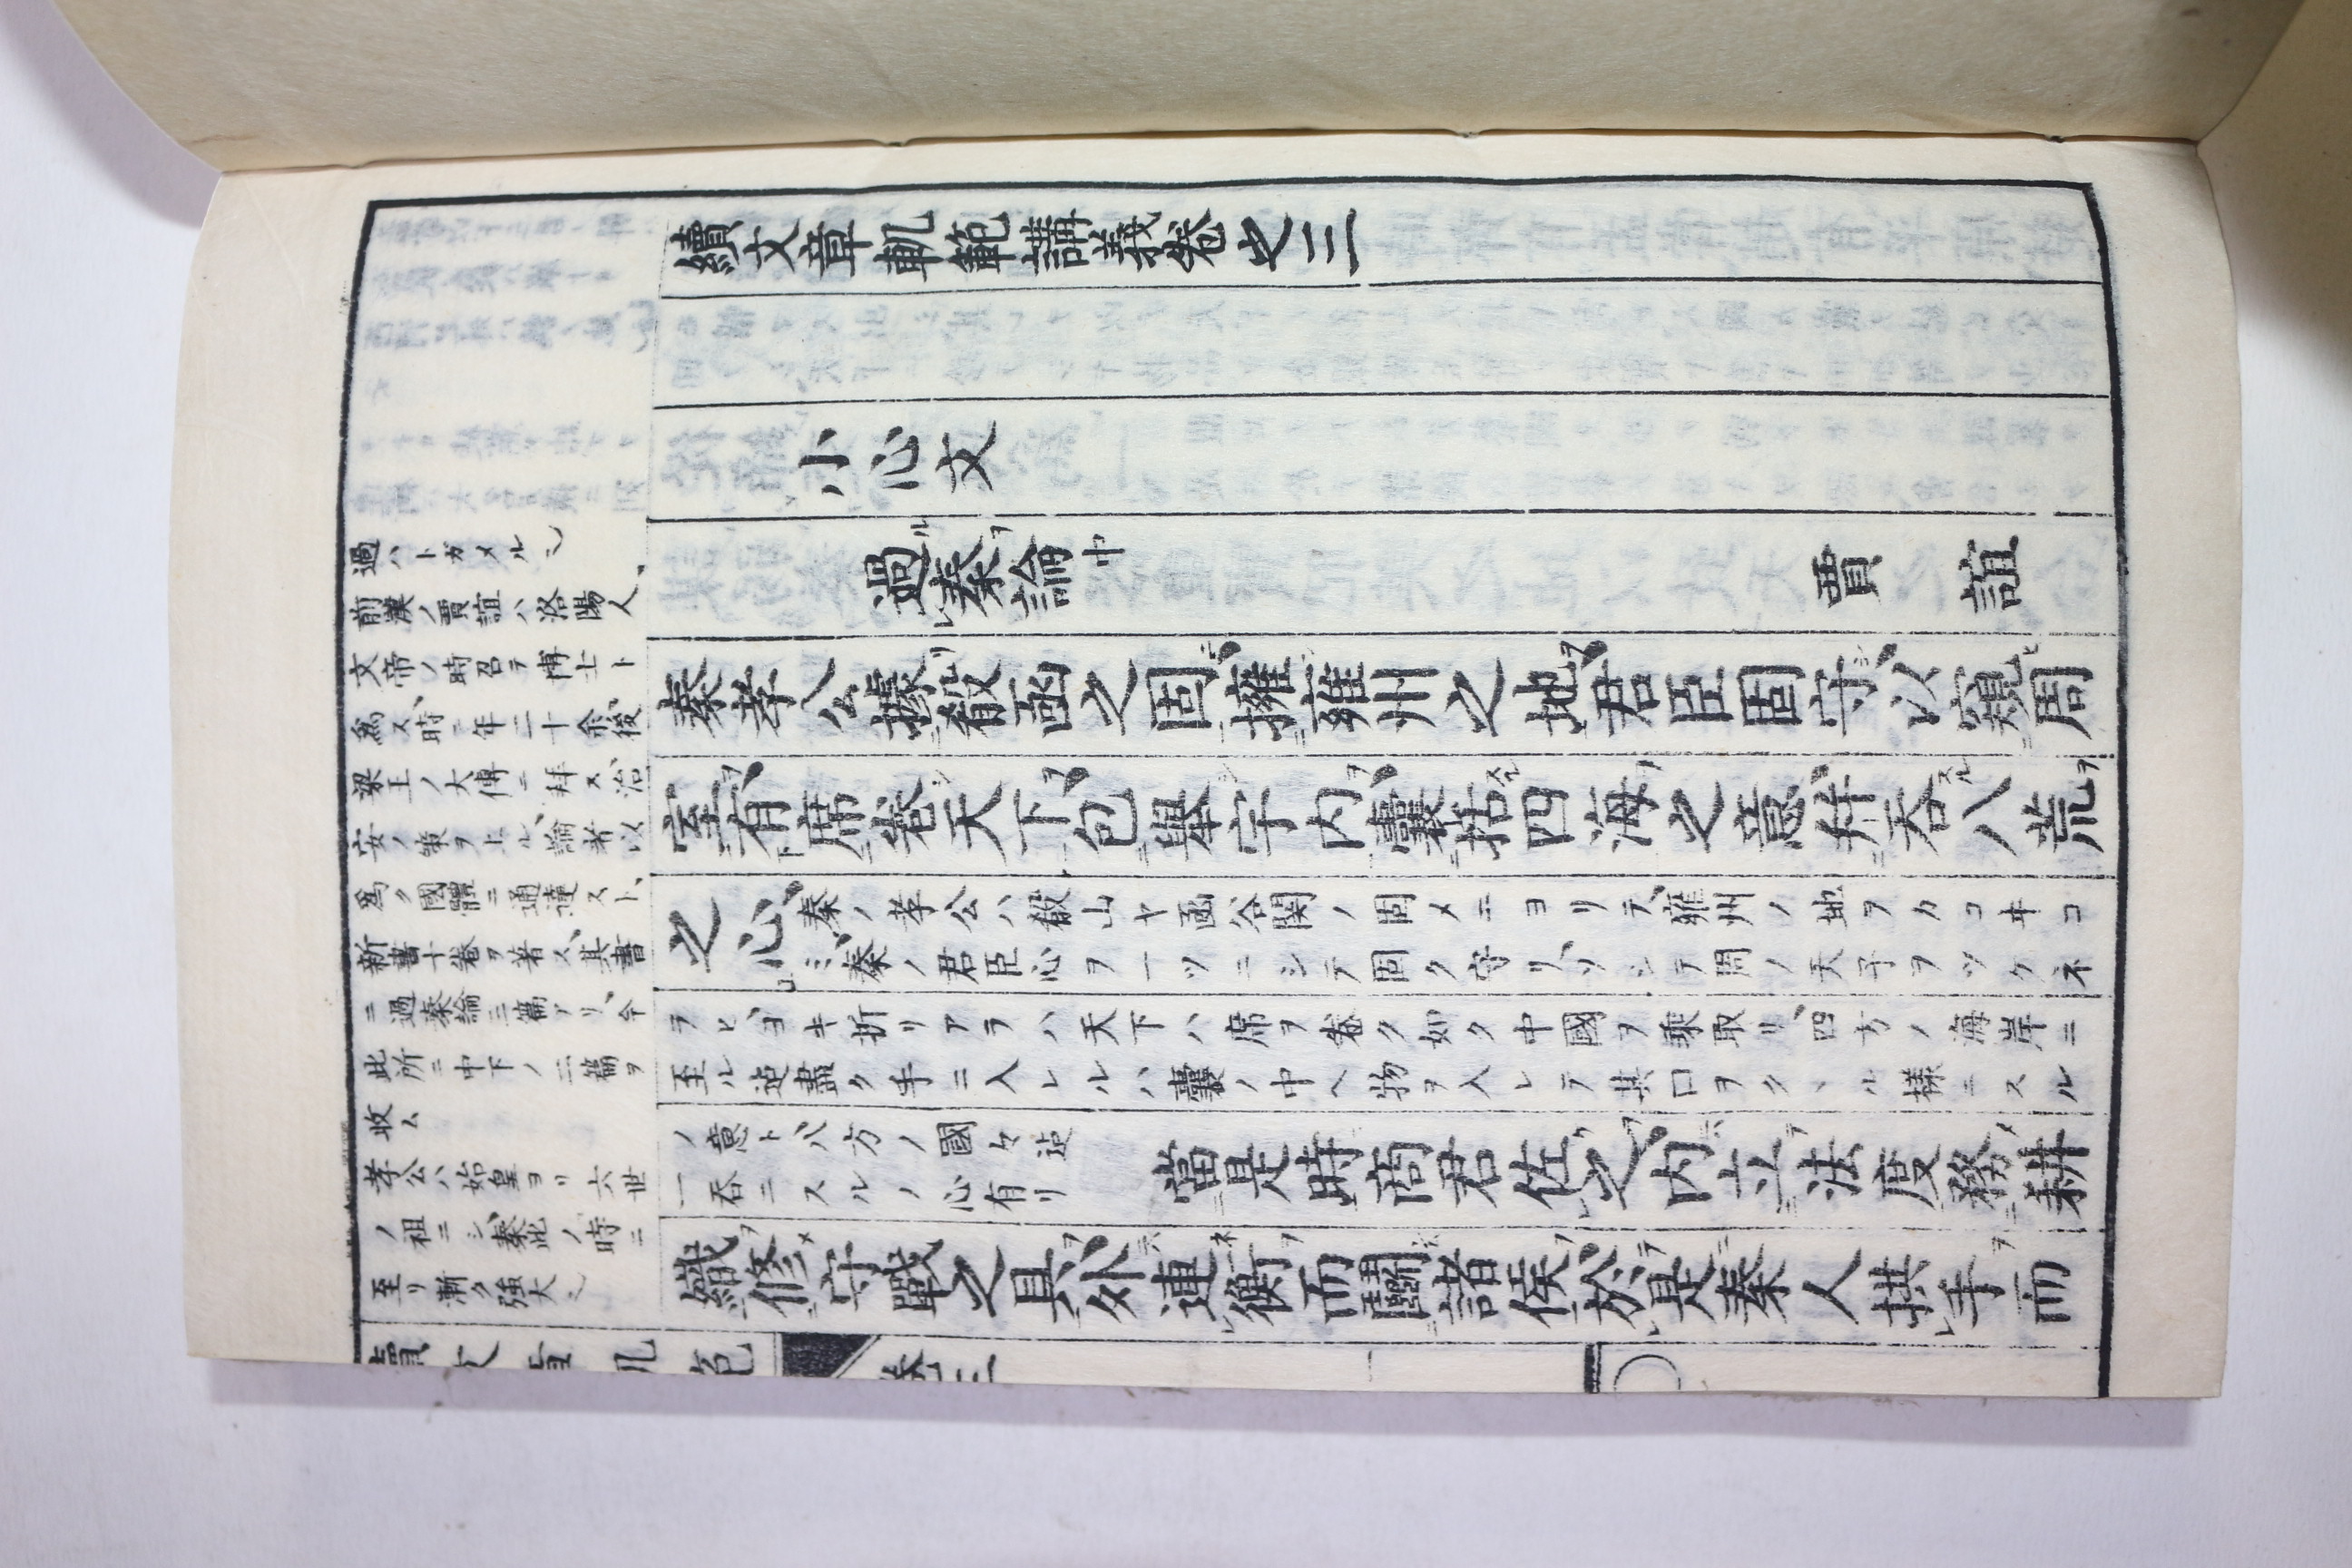 續文章軌範講義卷之三
小心文
過秦論中 賈誼
秦孝公據殽函之固擁雍州之地君臣固守以窺周
室有席卷天下包舉宇内囊括四海之意幷吞八荒
之心
秦ノ孝公ハ殽山ヤ函谷関ノ固メニヨリテ、雍州ノ地ヲカコヰコ
ミ、秦ノ君臣心ヲ一ツニシテ固ク守リ、ソシテ周ノ天子ヲツケネ
ラヒ、ヨキ折リアラハ天下ハ席ヲ卷ク如ク中國ヲ乘取リ、四方ノ海岸ニ
至ル迠盡ク手ニ入レルハ囊ノ中ヘ物ヲ入レテ其口ヲクヽル樣ニスル
ノ意ト、八方ノ國々迠
一吞ニスルノ心有リ
當是時商君佐之内立法度務耕
織修守戰之具外連衡而鬭諸侯於是秦人拱手而
過ハトガメルㇱ
前漢ノ賈誼ハ洛陽人、
文帝ノ時召テ博士ト
爲ス、時ニ年二十余、後
梁王ノ大傅ニ拜ス、治
安ノ策ヲ上ル、論者以
爲ク國體ニ通達スト、
新書十卷ヲ著ス、其書
ニ過秦論三篇アリ、今
此所ニ中下ノ二篇ヲ
收ム
孝公ハ始皇ヨリ六世
ノ祖ニシ、秦此ノ時ニ
至リ漸ク強大ㇱ
續文章軌範 卷三 一